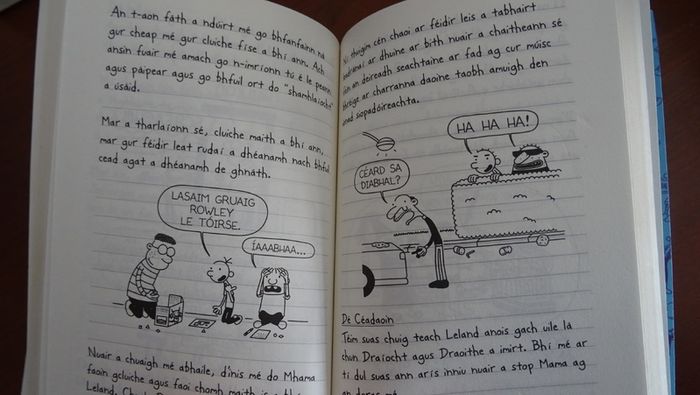 An t-aon fáth a ndúirt mé go bhfanfainn ná
gur cheap mé gur cluiche físe a bhí ann. Ach
ansin fuair mé amach go n-imríonn tú é le peann
agus páipéar agus go bhfuil ort do "shamhlaíocht"
a úsáid.
Mar a tharlaíonn sé, cluiche maith a bhí ann,
mar gur féidir leat rudaí a dhéanamh nach bhfuil
cead agat a dhéanamh de ghnáth.
LASAIM GRUAIG
ROWLEY
LE TÓIRSE.
ÍAAABHAA...
Nuair a chuaigh mé abhaile, d'inis mé do Mhama
faoin gcluiche agus faoi chomh maith is a
Leland,
Ní thuigim cén chaoi ar féidir leis a thabhairt
ar dhuine ar bith nuair a chaitheann sé
an deireadh seachtaine ar fad ag cur múisc
bhréige ar charranna daoine taobh amuigh den
ionad siopadóireachta.
HA HA HA!
CÉARD SA
DIABHAL?
Dé Céadaoin
Téim suas chuig teach Leland anois gach uile lá
chun Draíocht agus Draoithe a imirt. Bhí mé ar
tí dul suas ann arís inniu nuair a stop Mama ag
an doras mé.